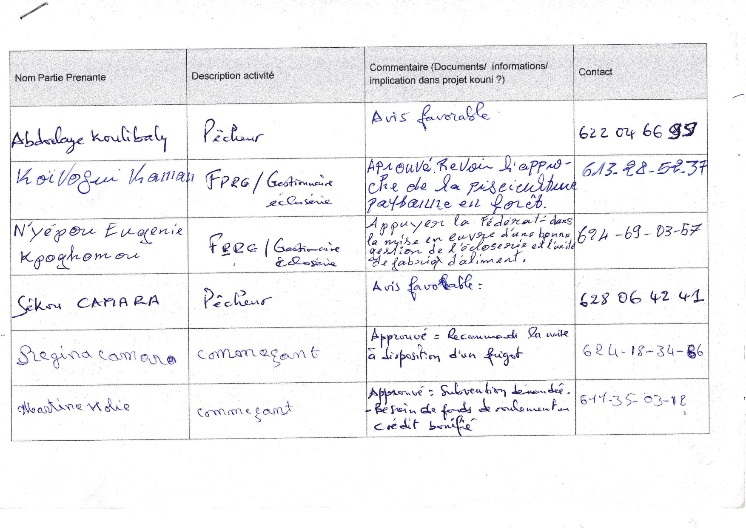 Nom Partie Prenante
Description activité
Commentaire (Documents/ informations/
implication dans projet kouni ?)
Contact
Abdoulaye Koulibaly
Pêcheur
Avis favorable
622 04 66 99
Koïvogui Kaman
FPRG/Gestionnaire
éclosérie
Aprouvé. Revoir l'appro-
che de la pisciculture
paysanne en forêt.
613-28-52-37
N'yépou Eugenie
Kpoghomou
FPRG/Gestionnaire
éclosérie
Appuyer la Fédérat- dans
la mise en euvre d'une bonne
gestion de l'écloserie et l'unité
de fabriq d'aliment.
624-69-03-57
Sékou CAMARA
Pêcheur
Avis favorable =
628 06 42 41
Regina camara
commeçant
Approuvé = Recommande la mise
à disposition d'un frigot
624-18-34-66
Martine Kolie
commeçant
Approuvé = Subvention demandée.
- Besoin de fonds de roulement en
crédit bonifié
611-35-03-12